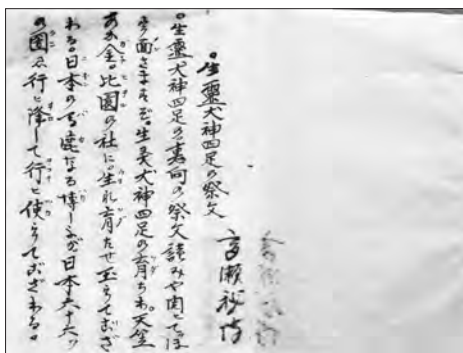 高瀬
。生霊犬神四足の祭文
。生霊犬神四足の裏向の祭文読みや開とてほ
面さまそぞ。生霊犬神四足の育ちわ。天竺
あか金。比国の社に。生れ育たせ玉うておざ
わる。日本の なる博士が日本六十六ヶ
の国ゑ行ヒ降して行ヒ使うておざわる。